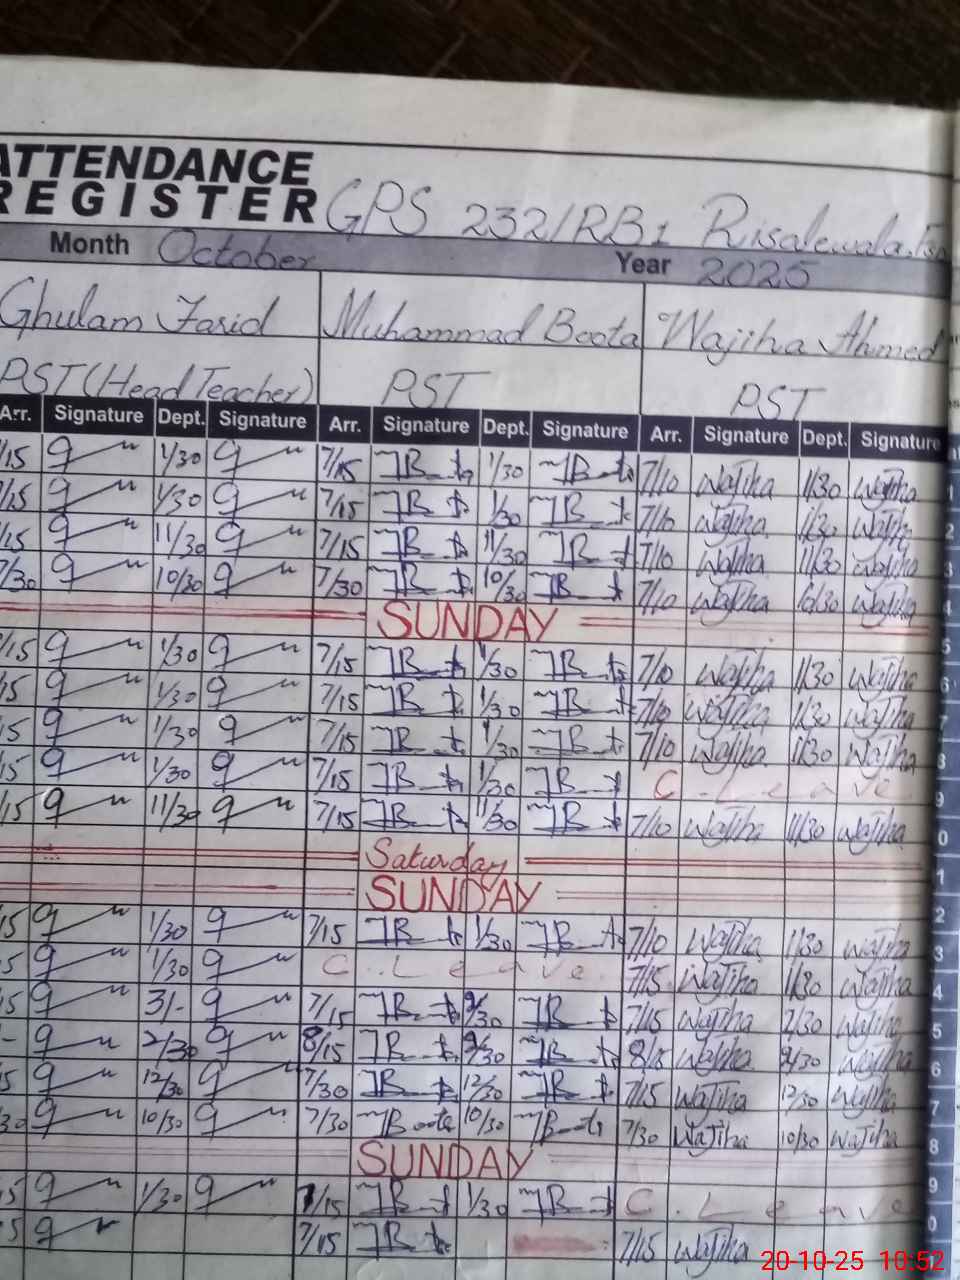 ATTENDANCE
REGISTER GPS 232/RB1 Risalewala
Month October Year 2025
Ghulam Farid Muhammad Boota Wajiha Ahmed
PST (Head Teacher) PST PST
Arr. Signature Dept. Signature Arr. Signature Dept. Signature Arr. Signature Dept. Signature
/15 1/30 7/15 1/30 7/10 Wajiha 1/30 Wajiha
/15 1/30 7/15 1/30 7/10 Wajiha 1/30 Wajiha 2
/15 11/30 7/15 11/30 7/10 Wajiha 11/30 Wajiha 3
7/30 10/30 7/30 10/30 7/10 Wajiha 10/30 Wajiha 4
SUNDAY 5
/15 1/30 7/15 1/30 7/10 Wajiha 1/30 Wajiha 6
15 1/30 7/15 1/30 7/10 Wajiha 1/30 Wajiha 7
15 1/30 7/15 1/30 7/10 Wajiha 1/30 Wajiha 8
15 1/30 7/15 1/30 C. Leave 9
/15 11/30 7/15 11/30 7/10 Wajiha 11/30 Wajiha 0
Saturday 1
SUNDAY 2
15 1/30 7/15 1/30 7/10 Wajiha 1/30 Wajiha 3
5 1/30 C. Leave 7/15 Wajiha 1/30 Wajiha 4
15 3/- 7/15 2/30 7/15 Wajiha 2/30 Wajiha 5
- 2/30 8/15 2/30 Wajiha 2/30 Wajiha 6
5 12/30 7/30 12/30 7/15 Wajiha 12/30 Wajiha 7
30 10/30 7/30 Boota 10/30 Boota 7/30 Wajiha 10/30 Wajiha 8
SUNDAY 9
5 1/30 7/15 1/30 C. Leave 0
5 7/15 7/15 Wajiha
20-10-25 10:52